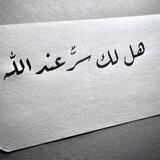 هل لك سرٌّ عند الله